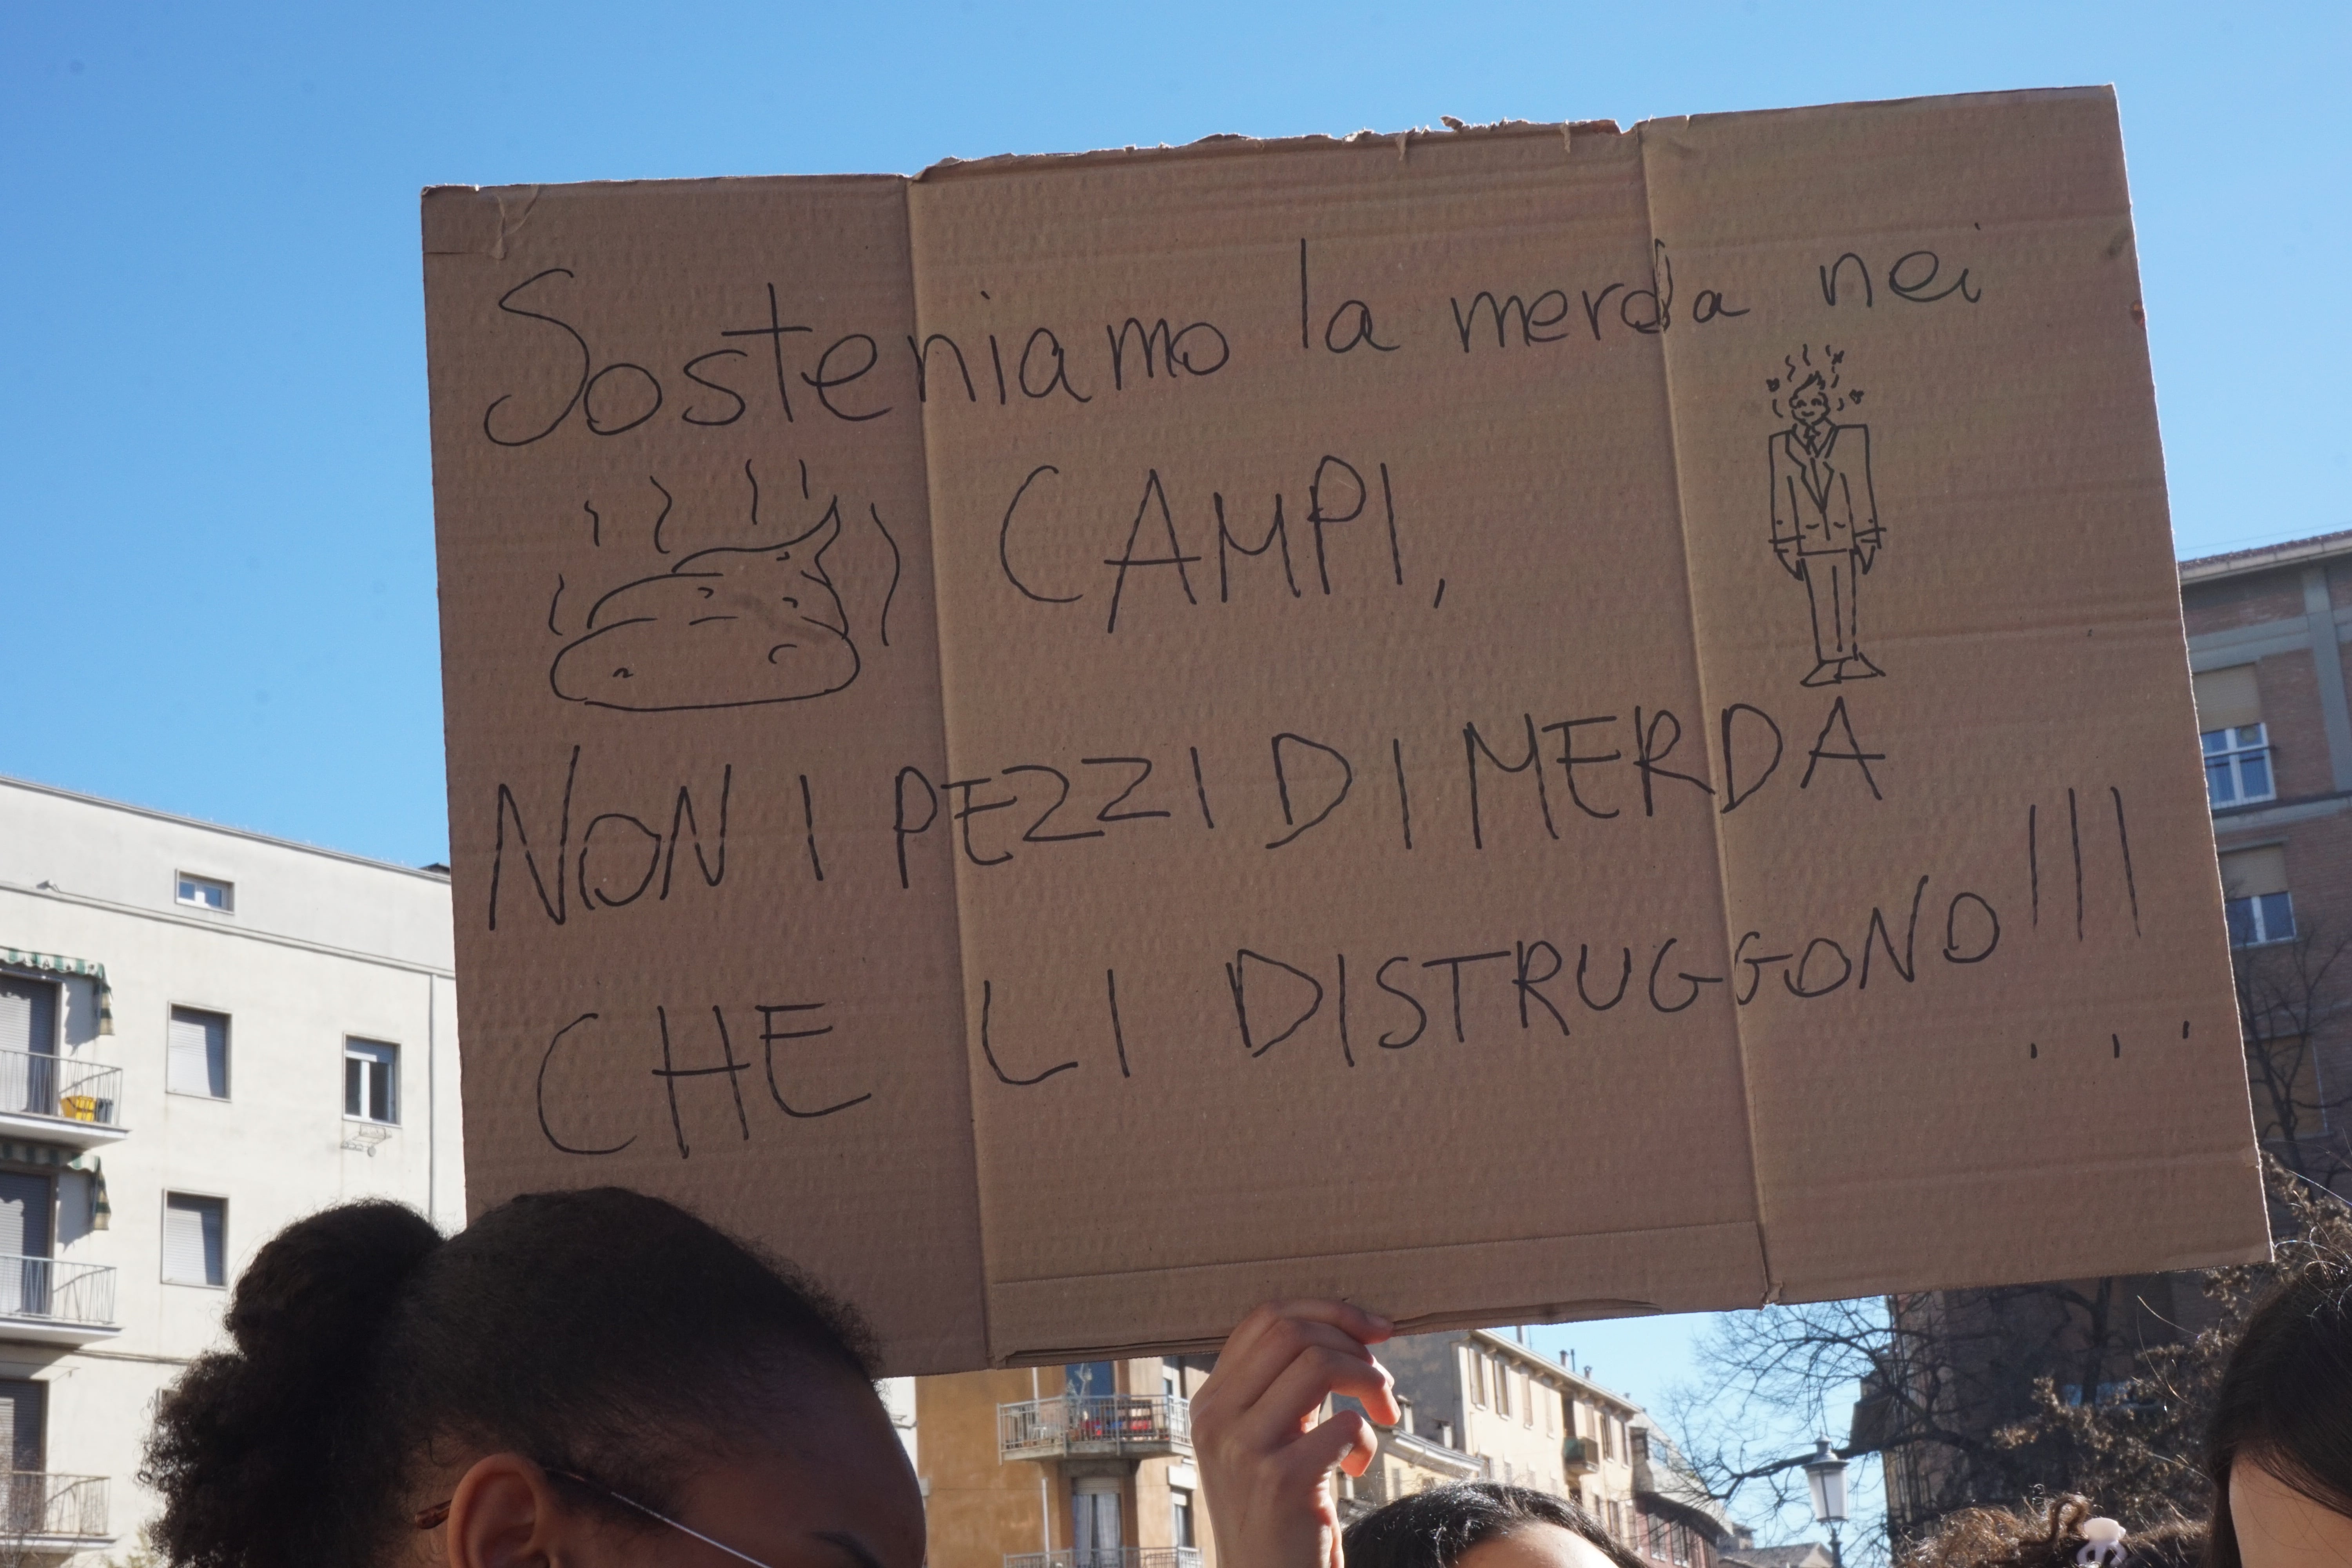 Sosteniamo la merda nei
CAMPI,
NON I PEZZI DI MERDA
CHE LI DISTRUGGONO!!!